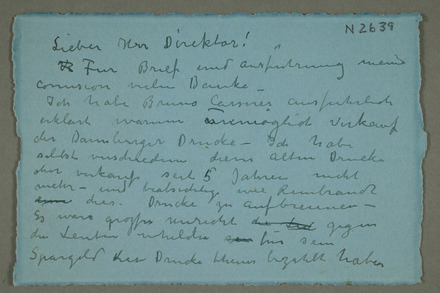 N2639
Lieber Herr Direktor!
Für Brief und ausführung meine
comission vielen Danke.
Ich habe Bruno Cassirer ausführlich
erklärt warum unmöglich Verkauf
der Drucke - Ich habe
selbst verschiedene dieses alten Drucke
aber verkaufe seit 5 Jahren nicht
mehr - und wie Rembrandt
dies. Drucke zu aufbrennen -
Es wäre grosses unrecht gegen
die Leuten welche für sein
Spargeld Drucke bezahlt haben